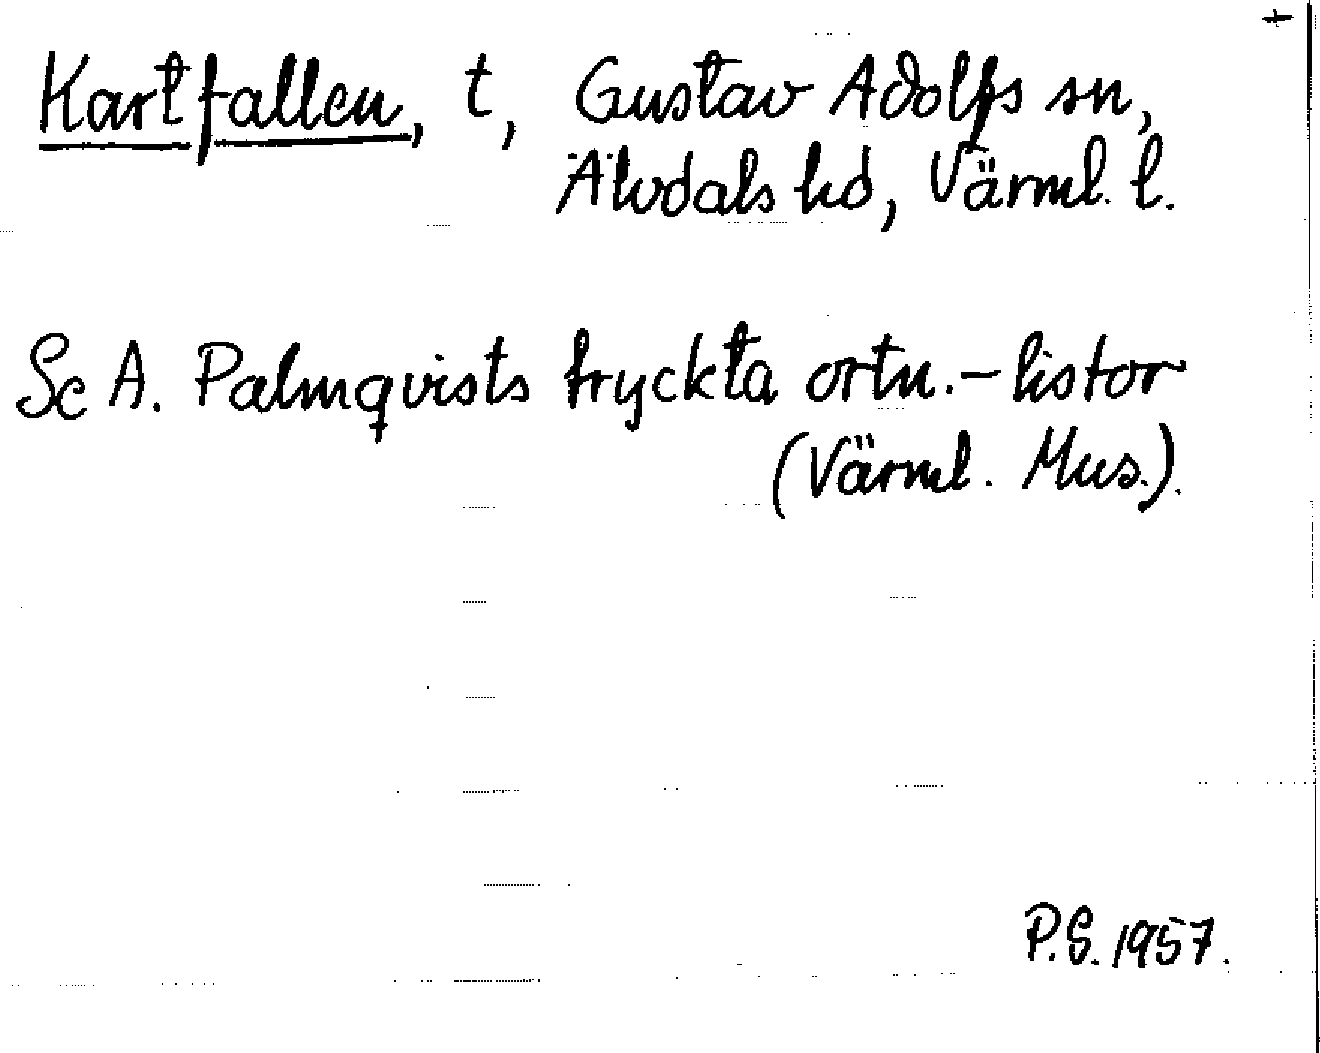 +
Kartfallen, t, Gustav Adolfs sn,
Älvdals hd, Värml. l.
Se A. Palmqvists tryckta ortn.-listor
(Värml. Mus.).
P.S. 1957.